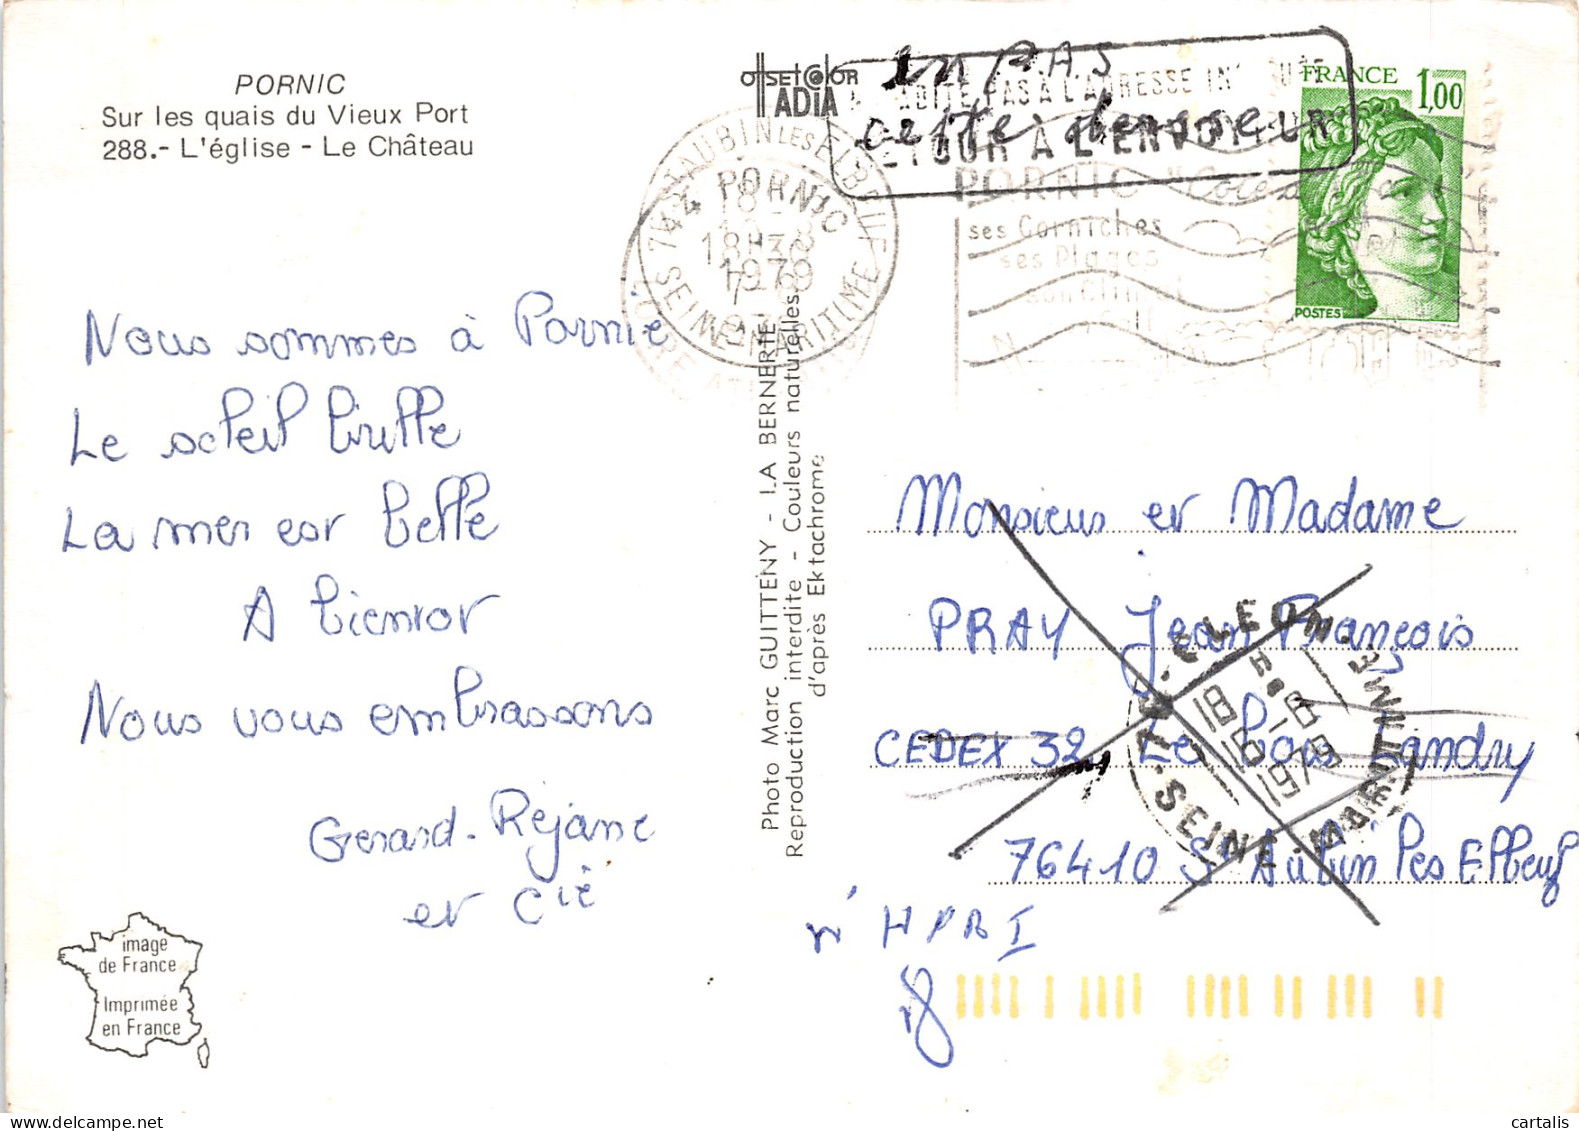 PORNIC
Sur les quais du Vieux Port
288.- L'église - Le Château
Nous sommes à Pornic
Le soleil brille
La mer est belle
A bientot
Nous vous embrassons
Gerard-Rejane
et Cie
image
de France
Imprimée
en France
offset color
ADIA
Photo Marc GUITTENY - LA BERNERIE
Reproduction interdite - Couleurs naturelles
d'après Ektachrome
PAS À L'ADRESSE
RETOUR À L'ENVOYEUR
cette adresse
ST AUBIN LES ELBEUF
SEINE MARITIME
44 PORNIC
1979
PORNIC
ses Corniches
ses Plages
son Climat
FRANCE 1,00
POSTES
Monsieur et Madame
PRAY Jean François
CEDEX 32, Le bois Landry
76410 St Aubin les Elbeuf
76 - CLEON
18 H
-8
1979
SEINE-MARITIME